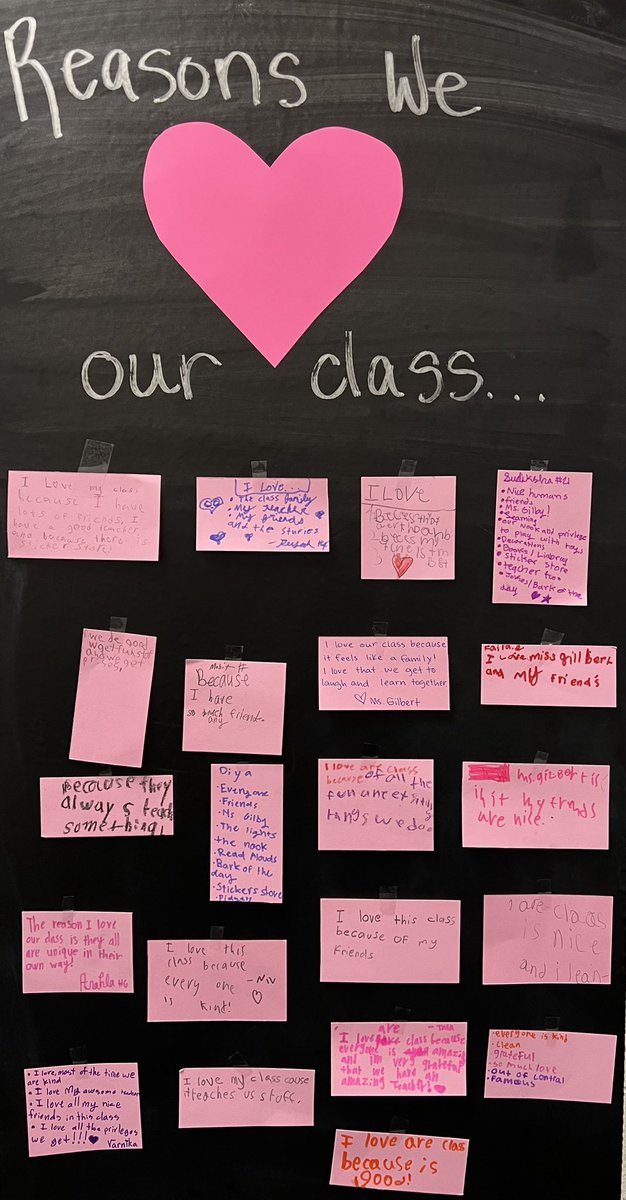 Reasons We
our class...
I Love my class
because I have
lots of friends, I
have a good teacher
and because there is
sticker store!
I LOVE...
• The class family
• My teacher
• My friends
and the stories
I LOVE
Sudiksha #21
• Nice humans
• friends
• Ms. Gilby!
• Learning
• our nook abd privilege
to play with toys
• Decorations
• Books/Liabray
• sticker store
• teacher too
• Jokes/Bark of the
day
we get
Because
I have
so much friend.
any
I love our class because
it feels like a family!
I love that we get to
laugh and learn together
Ms. Gilbert
I love miss gilbert
and My Friends
because they
always teach
something!
Diya
• Everyone
• Friends
• Ms Gilby
• The lights
the nook
• Read Alouds
• Bark of the
day
• Stickers store
I love are class
because of all the
fun
things we do
ms. gilbert is
nice.
are nice.
The reason I love
our class is they all
are unique in their
own way!
#6
I love this
class because
every one
is kind!
- Niv
I love this class
because of my
friends
are class
is nice
and i lean
• I love, most of the time we
are kind
• I love My awesome teacher
• I love all my nice
friends in this class
• I love all the privleges
we get!!!
Varnika
I love my class cause
it teaches us stuff.
are
I love class because
everyone is amazing
and i'm very grateful
that we have an
amazing teacher!
• everyone is kind
• clean
• grateful
• so much love
• out of control
• famous
I love are class
because is
good!